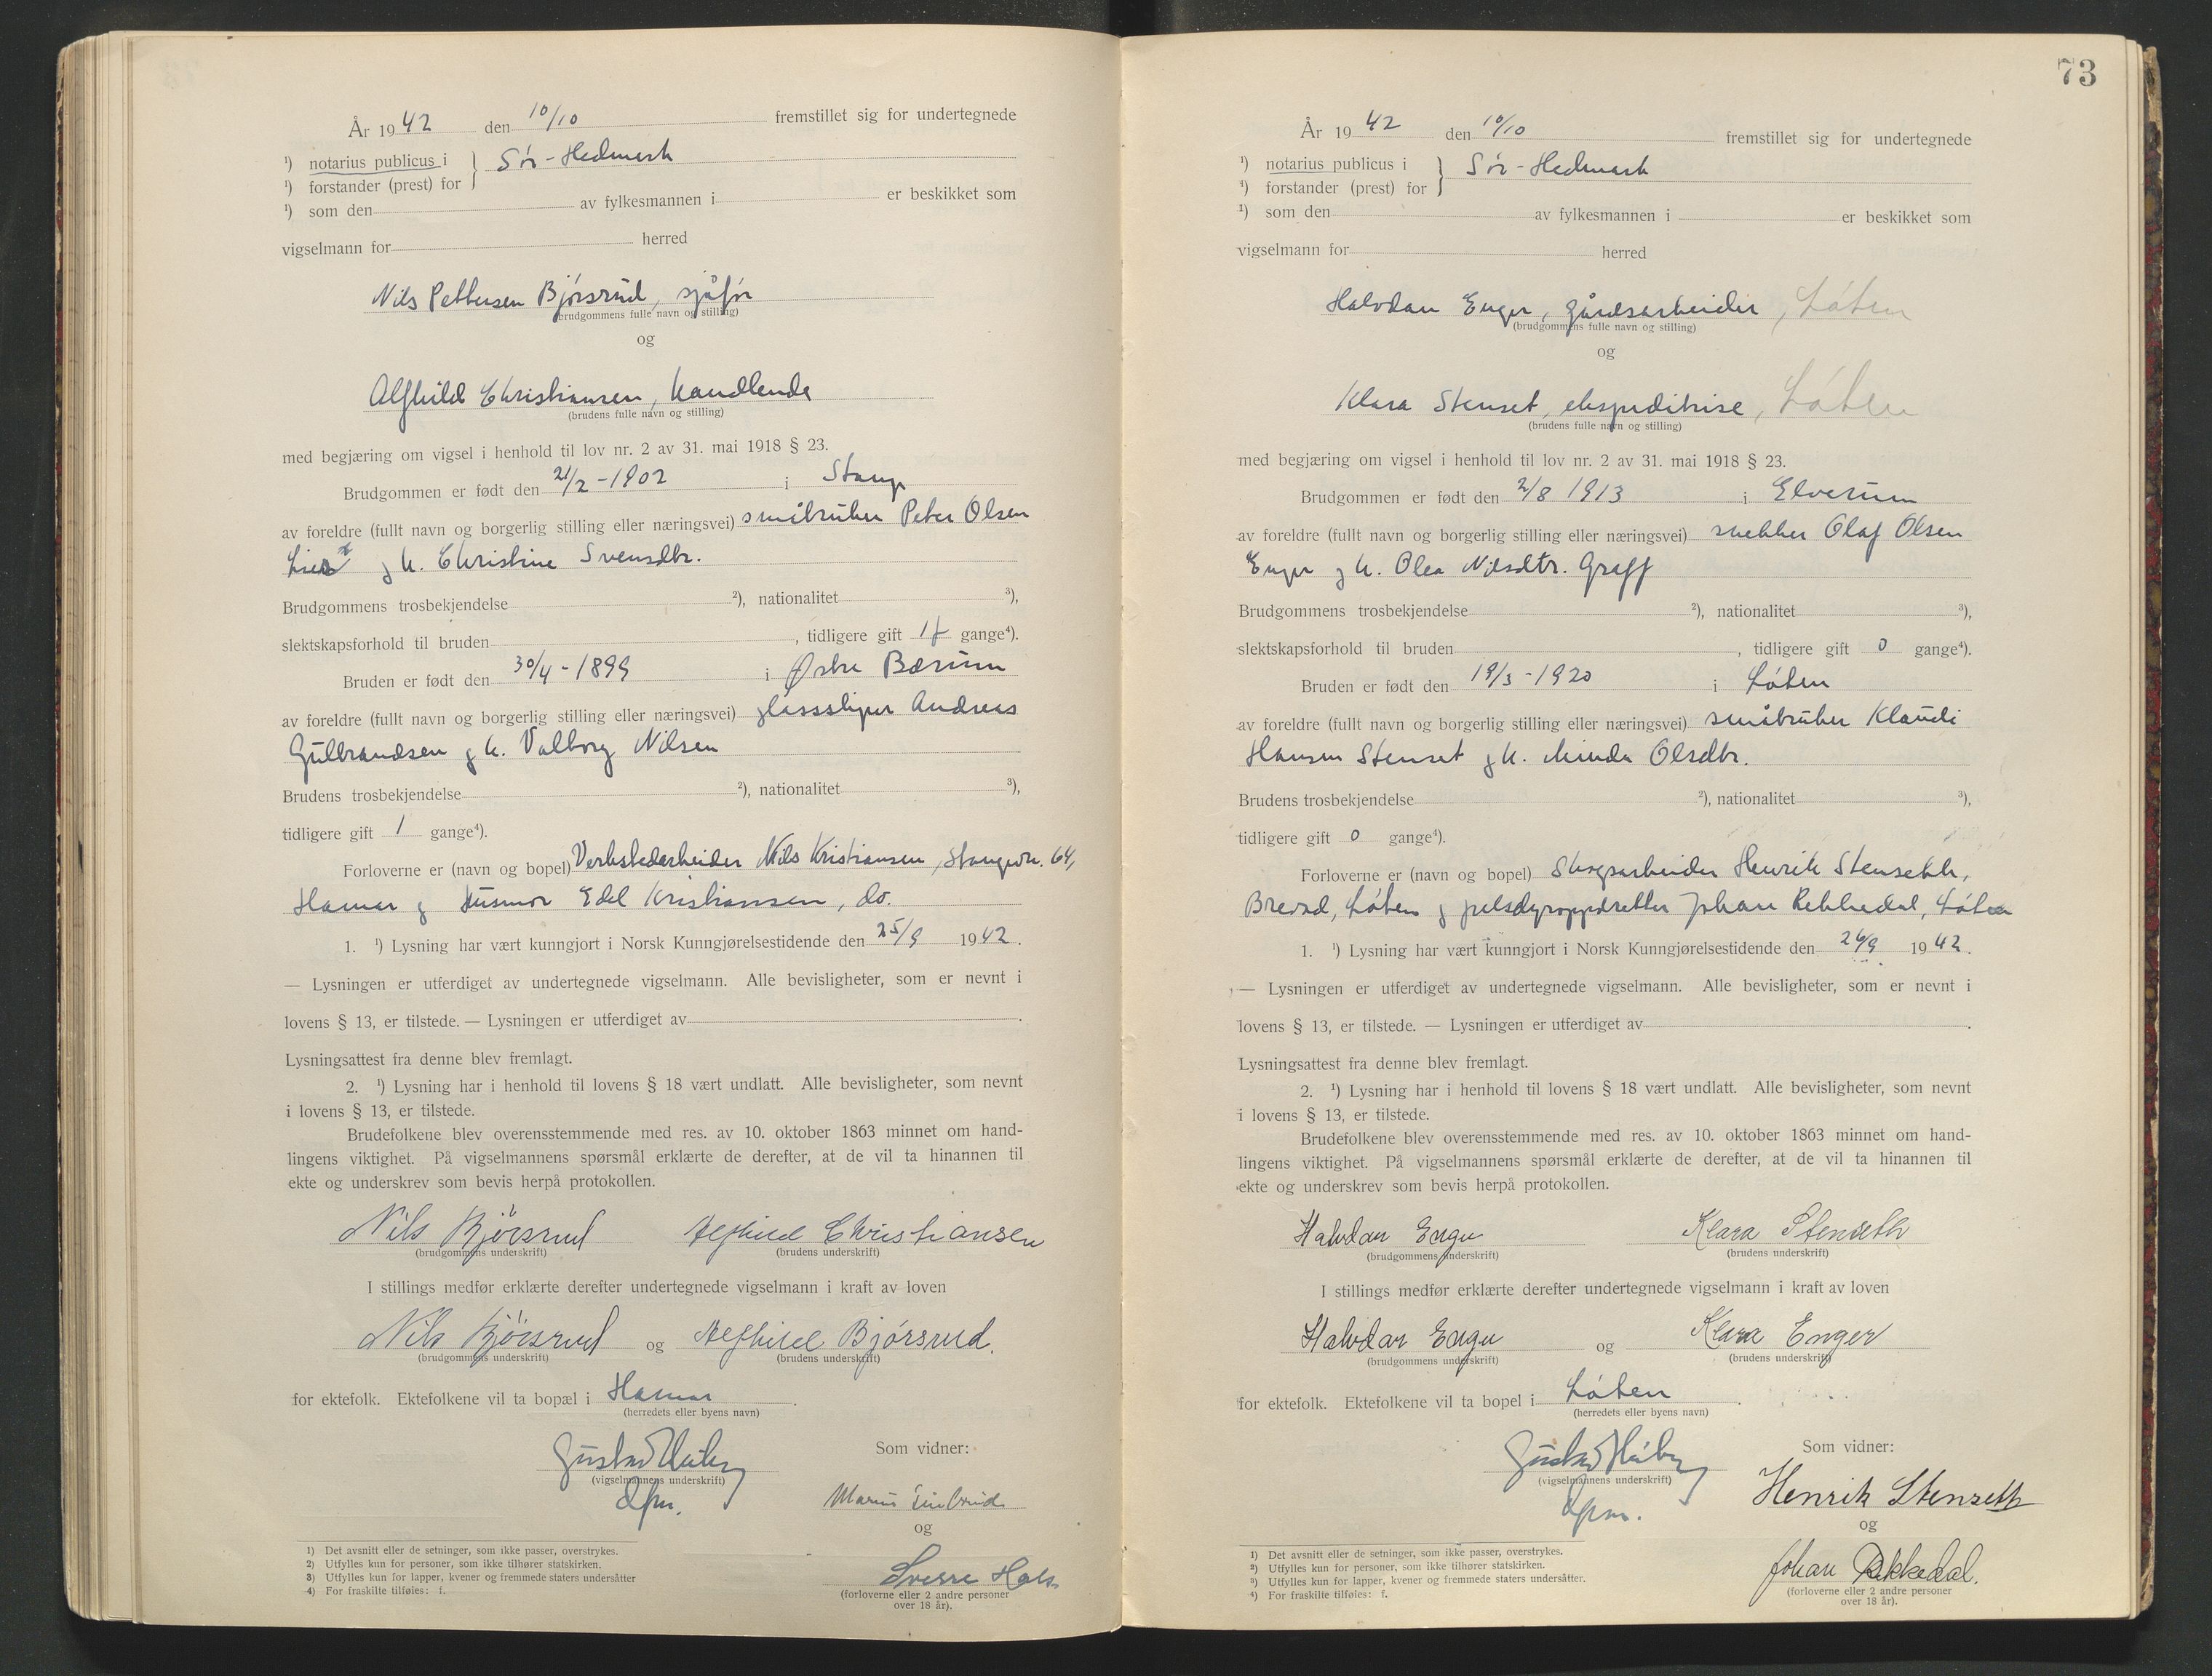 År 19 42 den 10/10 fremstillet sig for undertegnede
¹) notarius publicus i } Sør-Hedmark
¹) forstander (prest) for
¹) som den av fylkesmannen i er beskikket som
vigselmann for herred
Nils Pettersen Bjørsrud, sjåfør
(brudgommens fulle navn og stilling)
og
Alfhild Christiansen, handlende
(brudens fulle navn og stilling)
med begjæring om vigsel i henhold til lov nr. 2 av 31. mai 1918 § 23.
Brudgommen er født den 21/2 - 1902 i Stange
av foreldre (fullt navn og borgerlig stilling eller næringsvei) småbruker Peter Olsen
Lier og h. Christine Svensdtr.
Brudgommens trosbekjendelse ²), nationalitet ³),
slektskapsforhold til bruden , tidligere gift 1 f gange⁴).
Bruden er født den 30/4 - 1899 i Østre Bærum
av foreldre (fullt navn og borgerlig stilling eller næringsvei) glasssliper Andreas
Gulbrandsen og h. Valborg Nilsen
Brudens trosbekjendelse ²), nationalitet ³),
tidligere gift 1 gange⁴).
Forloverne er (navn og bopel) Verkstedarbeider Nils Kristiansen, Stangevn. 64,
Hamar og Husmor Edel Kristiansen, do.
1. ¹) Lysning har vært kunngjort i Norsk Kunngjørelsestidende den 25/9 1942.
— Lysningen er utferdiget av undertegnede vigselmann. Alle bevisligheter, som er nevnt i
lovens § 13, er tilstede. — Lysningen er utferdiget av .
Lysningsattest fra denne blev fremlagt.
2. ¹) Lysning har i henhold til lovens § 18 vært undlatt. Alle bevisligheter, som nevnt
i lovens § 13, er tilstede.
Brudefolkene blev overensstemmende med res. av 10. oktober 1863 minnet om hand-
lingens viktighet. På vigselmannens spørsmål erklærte de derefter, at de vil ta hinannen til
ekte og underskrev som bevis herpå protokollen.
Nils Bjørsrud Alfhild Christiansen
(brudgommens underskrift) (brudens underskrift)
I stillings medfør erklærte derefter undertegnede vigselmann i kraft av loven
Nils Bjørsrud og Alfhild Bjørsrud.
(brudgommens underskrift) (brudens underskrift)
for ektefolk. Ektefolkene vil ta bopæl i Hamar .
(herredets eller byens navn)
Som vidner:
(vigselmannens underskrift)
Marius
og
Sverre
(forloverne eller 2 andre personer
over 18 år).
1) Det avsnitt eller de setninger, som ikke passer, overstrykes.
2) Utfylles kun for personer, som ikke tilhører statskirken.
3) Utfylles kun for lapper, kvener og fremmede staters undersåtter
4) For fraskilte tilføies: f.
73
År 19 42 den 10/10 fremstillet sig for undertegnede
¹) notarius publicus i } Sør-Hedmark
¹) forstander (prest) for
¹) som den av fylkesmannen i er beskikket som
vigselmann for herred
Halvdan Enger, gårdsarbeider, Løten
(brudgommens fulle navn og stilling)
og
Klara Stenset, ekspeditrise, Løten
(brudens fulle navn og stilling)
med begjæring om vigsel i henhold til lov nr. 2 av 31. mai 1918 § 23.
Brudgommen er født den 2/8 1913 i Elverum
av foreldre (fullt navn og borgerlig stilling eller næringsvei) snekker Olaf Olsen
Enger og h. Olea Nilsdtr. Graff
Brudgommens trosbekjendelse ²), nationalitet ³),
slektskapsforhold til bruden , tidligere gift 0 gange⁴).
Bruden er født den 19/3 - 1920 i Løten
av foreldre (fullt navn og borgerlig stilling eller næringsvei) småbruker Klaudi
Hansen Stenset og h. Minda Olsdtr.
Brudens trosbekjendelse ²), nationalitet ³),
tidligere gift 0 gange⁴).
Forloverne er (navn og bopel) Skogsarbeider Henrik Stenseth,
Brevad, Løten og pelsdyroppdretter Johan Rekkedal, Løten
1. ¹) Lysning har vært kunngjort i Norsk Kunngjørelsestidende den 26/9 1942.
— Lysningen er utferdiget av undertegnede vigselmann. Alle bevisligheter, som er nevnt i
lovens § 13, er tilstede. — Lysningen er utferdiget av .
Lysningsattest fra denne blev fremlagt.
2. ¹) Lysning har i henhold til lovens § 18 vært undlatt. Alle bevisligheter, som nevnt
i lovens § 13, er tilstede.
Brudefolkene blev overensstemmende med res. av 10. oktober 1863 minnet om hand-
lingens viktighet. På vigselmannens spørsmål erklærte de derefter, at de vil ta hinannen til
ekte og underskrev som bevis herpå protokollen.
Halvdan Enger Klara Stenseth
(brudgommens underskrift) (brudens underskrift)
I stillings medfør erklærte derefter undertegnede vigselmann i kraft av loven
Halvdan Enger og Klara Enger
(brudgommens underskrift) (brudens underskrift)
for ektefolk. Ektefolkene vil ta bopel i Løten .
(herredets eller byens navn)
Som vidner:
(vigselmannens underskrift)
Henrik Stenseth
og
Johan Rekkedal.
(forloverne eller 2 andre personer
over 18 år).
¹) Det avsnitt eller de setninger, som ikke passer, overstrykes.
²) Utfylles kun for personer, som ikke tilhører statskirken.
³) Utfylles kun for lapper, kvener og fremmede staters undersåtter.
⁴) For fraskilte tilføies: f.